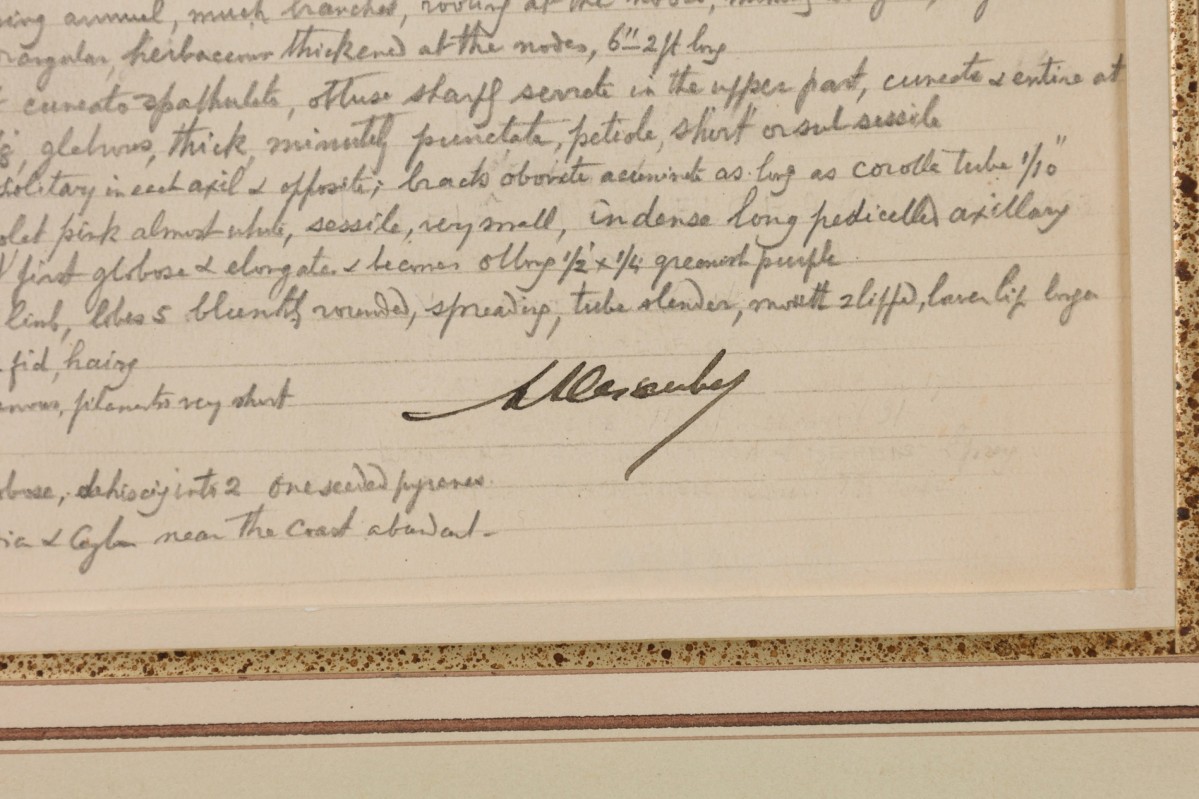 annual, much branched, rooting at the nodes,
herbaceous thickened at the nodes, 6"-2 ft long
cuneato spathulate, obtuse sharply serrate in the upper part, cuneate & entire at
glabrous, thick, minutely punctate, petiole, short or sub sessile
solitary in each axil & opposite; bracts obovate acuminate as long as corolla tube 1/10"
pink almost white, sessile, very small, in dense long pedicelled axillary
first globose & elongates & becomes oblong 1/2 x 1/4 greenish purple
limb, lobes 5 bluntly rounded, spreading, tube slender, mouth 2 lipped, lower lip larger
fid, hairy
filaments very short
dehiscing into 2 one seeded pyrenes.
& Ceylon near the coast abundant -